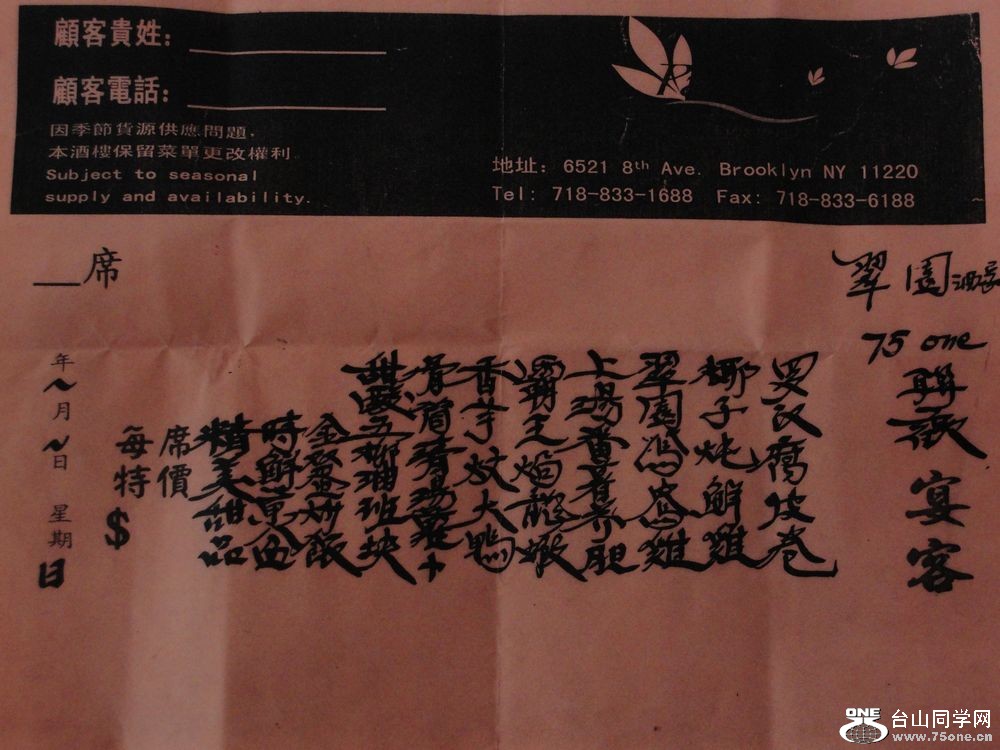 顧客貴姓：
顧客電話：
因季節貨源供應問題，
本酒樓保留菜單更改權利
Subject to seasonal
supply and availability.
地址：6521 8th Ave. Brooklyn NY 11220
Tel: 718-833-1688 Fax: 718-833-6188
翠園酒家
75 one
聯歡宴客
罗汉腐皮卷
椰子炖鮮雞
翠園鴛鴦雞
上湯
霸王焗龍蝦
香芋炆大鴨
甜酸五柳班块
炒飯
時鮮
精美甜品
席價
每特$
年～月～日 星期日
席
ONE
台山同学网
www.75one.cn